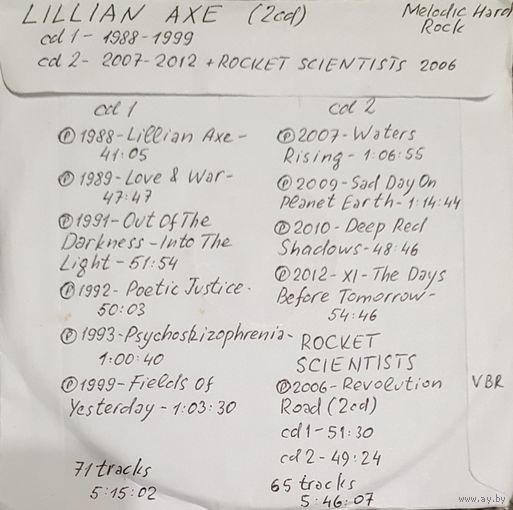 LILLIAN AXE (2cd)
Melodic Hard
Rock
cd 1 - 1988-1999
cd 2 - 2007-2012 + ROCKET SCIENTISTS 2006
cd 1
Ⓟ 1988 - Lillian Axe -
41:05
Ⓟ 1989 - Love & War -
47:47
Ⓟ 1991 - Out Of The
Darkness - Into The
Light - 51:54
Ⓟ 1992 - Poetic Justice -
50:03
Ⓟ 1993 - Psychoskizophrenia -
1:00:40
Ⓟ 1999 - Fields Of
Yesterday - 1:03:30
71 tracks
5:15:02
cd 2
Ⓟ 2007 - Waters
Rising - 1:06:55
Ⓟ 2009 - Sad Day On
Planet Earth - 1:14:44
Ⓟ 2010 - Deep Red
Shadows - 48:46
Ⓟ 2012 - XI - The Days
Before Tomorrow -
54:46
ROCKET
SCIENTISTS
Ⓟ 2006 - Revolution
Road (2cd)
cd 1 - 51:30
cd 2 - 49:24
65 tracks
5:46:07
VBR
www.ay.by